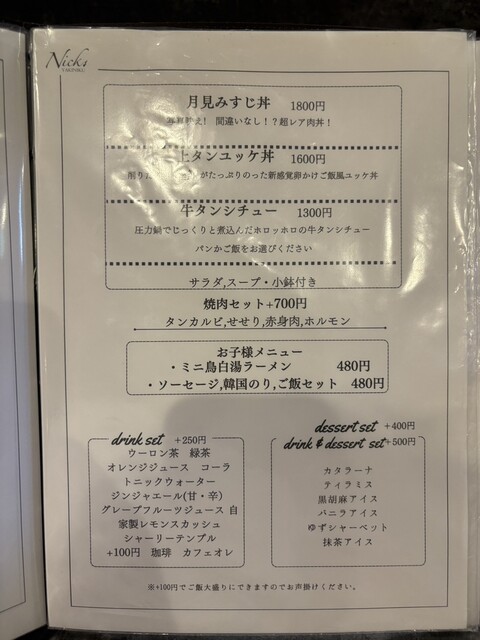 Nicks
YAKINIKU
月見みすじ丼 1800円
間違いなし!?超レア肉丼!
上タンユッケ丼 1600円
がたっぷりのった新感覚卵かけご飯風ユッケ丼
牛タンシチュー 1300円
圧力鍋でじっくりと煮込んだホロッホロの牛タンシチュー
パンかご飯をお選びください
サラダ,スープ・小鉢付き
焼肉セット+700円
タンカルビ,せせり,赤身肉,ホルモン
お子様メニュー
・ミニ鳥白湯ラーメン 480円
・ソーセージ,韓国のり,ご飯セット 480円
drink set +250円
ウーロン茶 緑茶
オレンジジュース コーラ
トニックウォーター
ジンジャエール(甘・辛)
グレープフルーツジュース 自
家製レモンスカッシュ
シャーリーテンプル
+100円 珈琲 カフェオレ
dessert set +400円
drink & dessert set +500円
カタラーナ
ティラミス
黒胡麻アイス
バニラアイス
ゆずシャーベット
抹茶アイス
※+100円でご飯大盛りにできますのでお声掛けください。